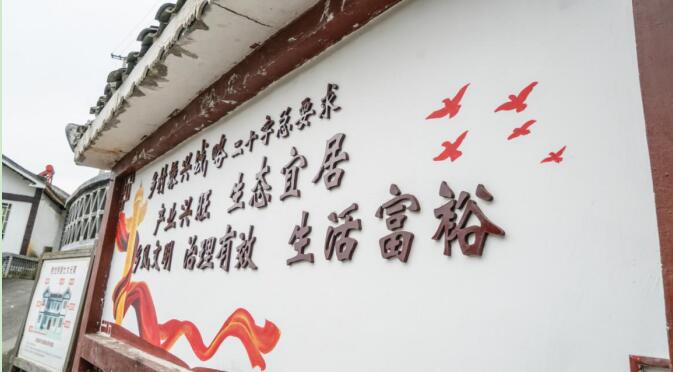 乡村振兴战略二十字总要求
产业兴旺 生态宜居
乡风文明 治理有效 生活富裕